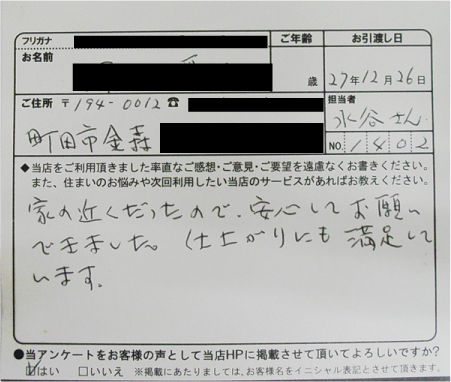 フリガナ
ご年齢
お引渡し日
お名前
歳
27年12月26日
ご住所 〒194-0012 ☎
担当者
水谷さん
町田市金森
NO. 1402
◆当店をご利用頂きました率直なご感想・ご意見・ご要望を遠慮なくお書きください。
また、住まいのお悩みや次回利用したい当店のサービスがあればお教えください。
家の近くだったので、安心してお願い
できました。仕上がりにも満足して
います。
●当アンケートをお客様の声として当店HPに掲載させて頂いてよろしいですか?
☑はい □いいえ ※掲載にあたりましては、お客様名をイニシャル表記とさせて頂きます。